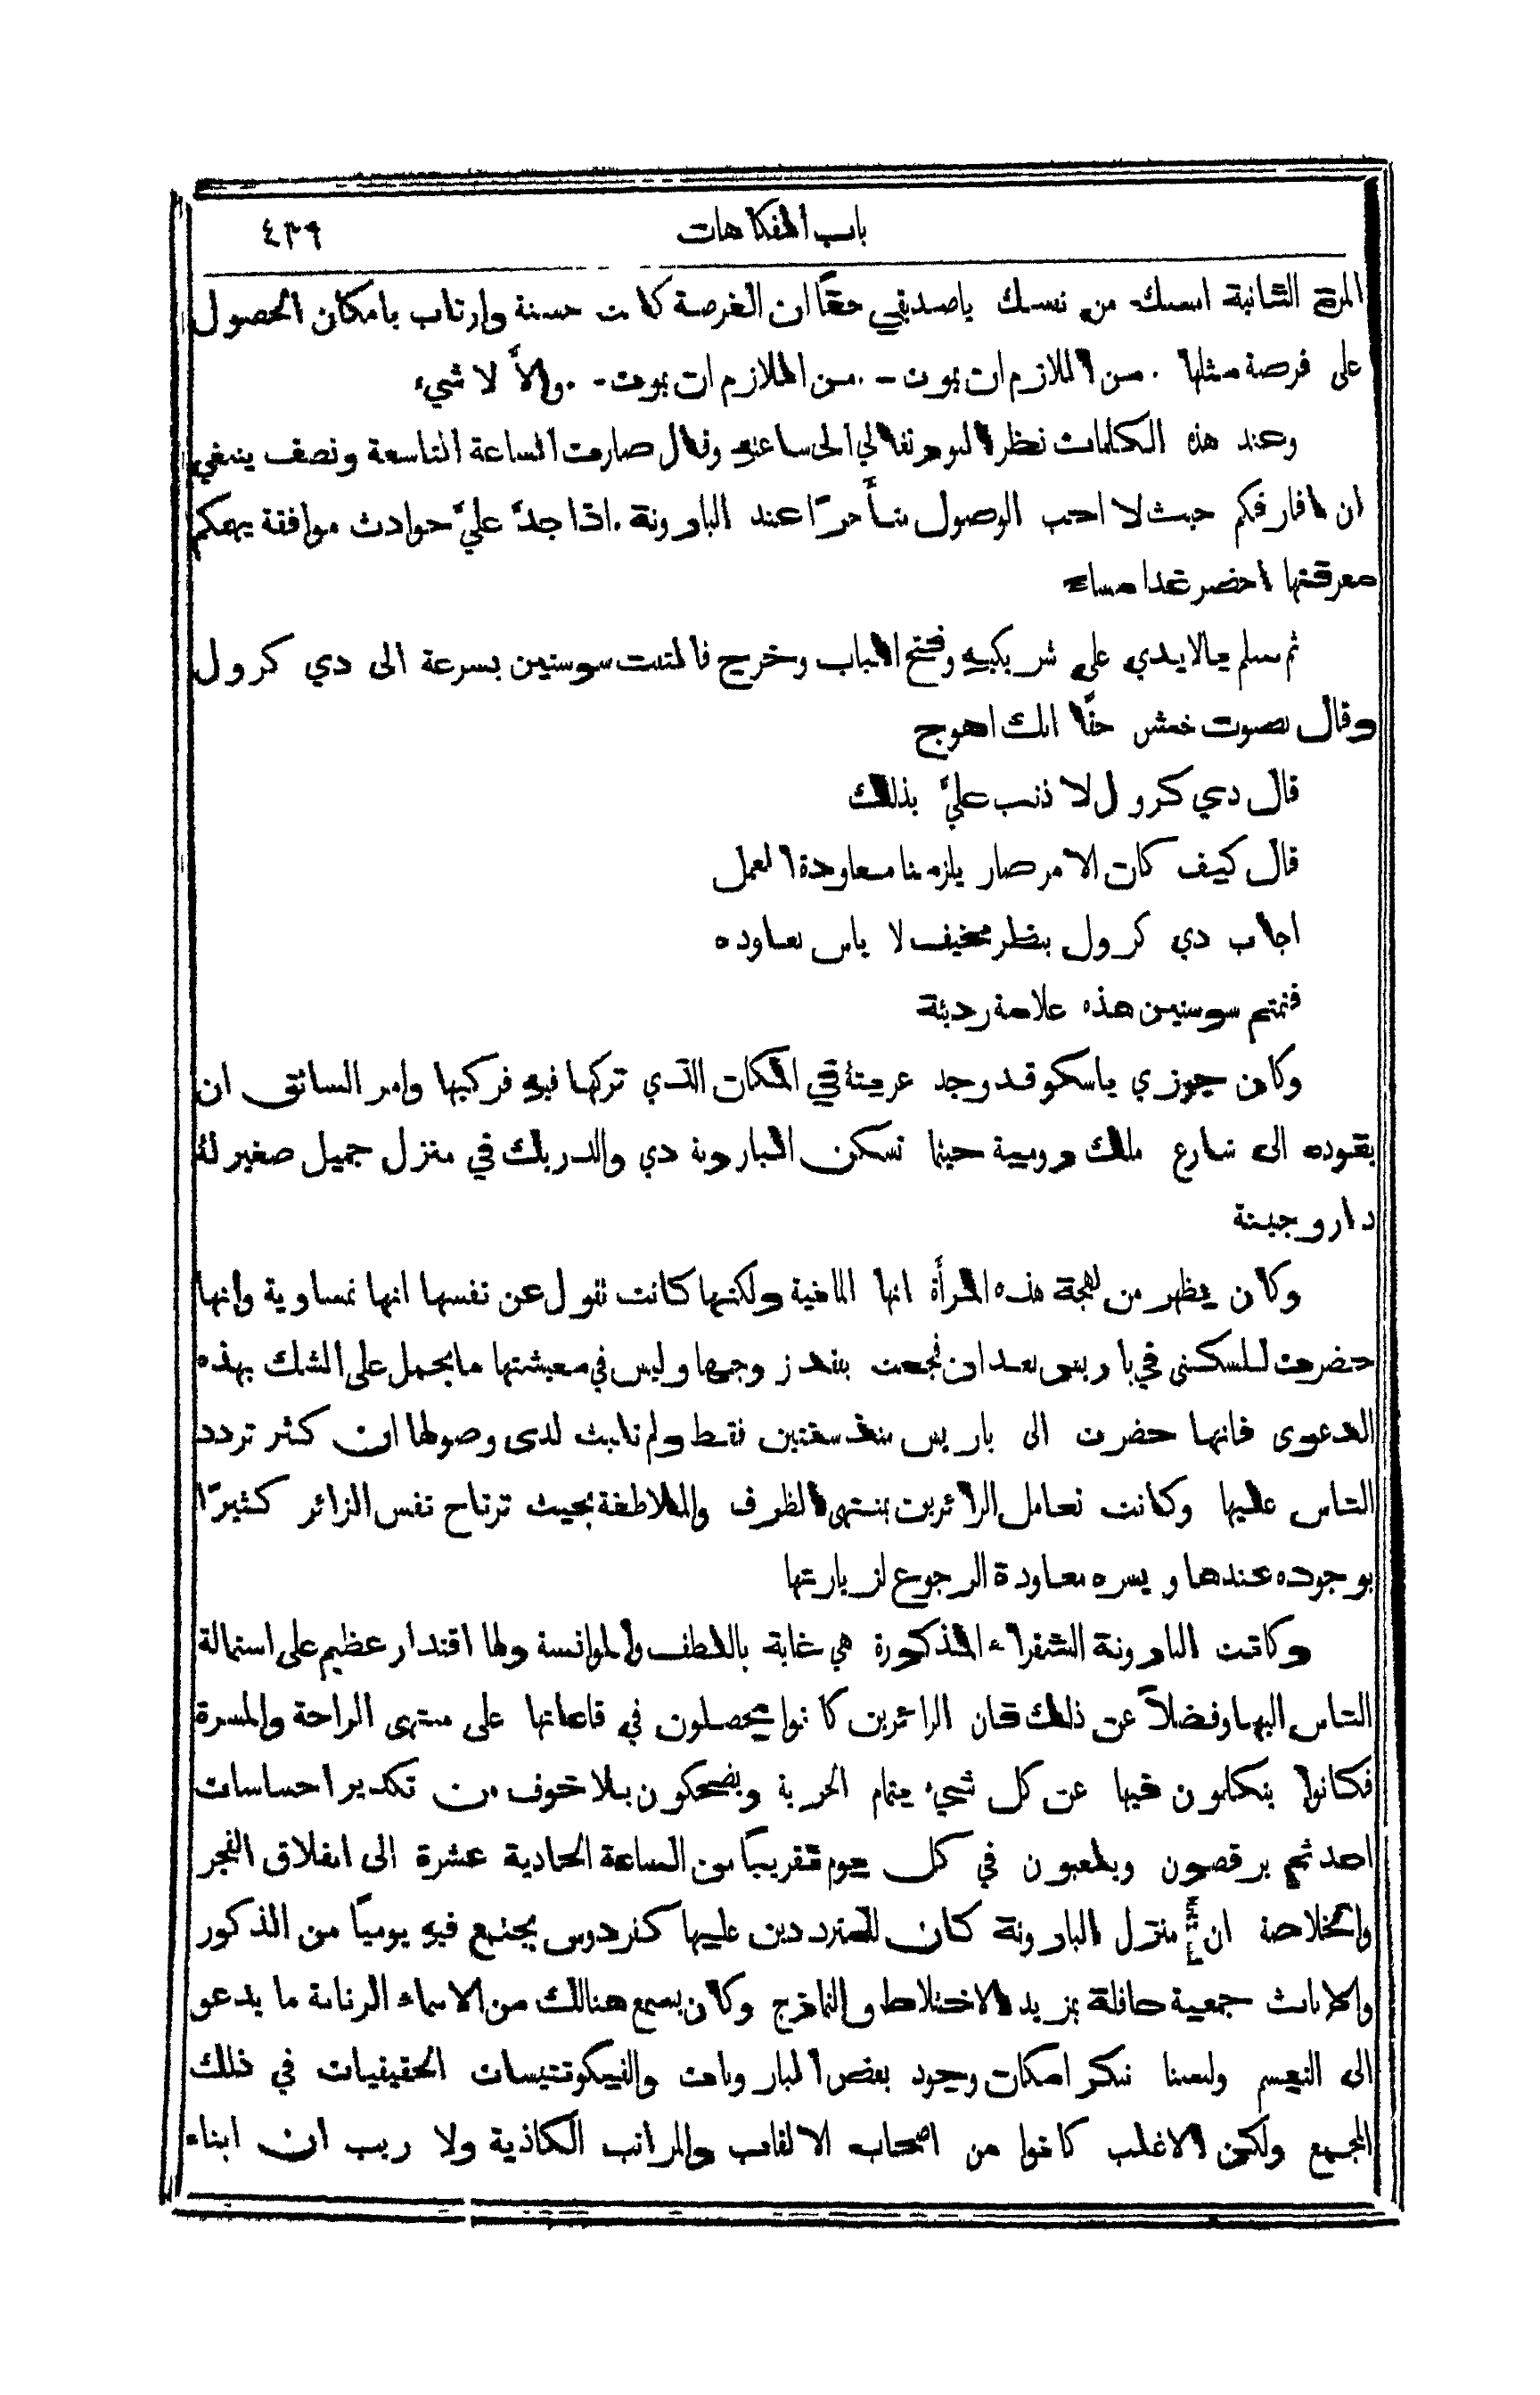 باب الفكاهات ٤٣٩
المرة الثانية امسك من نفسك ياصديقي حقًا ان الفرصة كانت حسنة وارتاب بامكان الحصول
على فرصة مثلها . من اللازم ان يموت - . من اللازم ان يموت - . والاَّ لا شيء
وعند هذه الكلمات نظر البورتغالي الى ساعته وقال صارت الساعة التاسعة ونصف ينبغي
ان افارقكم حيث لا احب الوصول متأخرًا عند البارونة . اذا جدَّ عليَّ حوادث موافقة يهمكم
معرفتها احضر غدا مساء
ثم سلم بالايدي على شريكيه وفتح الباب وخرج فالتفت سوستين بسرعة الى دي كرول
وقال بصوت خشن حقًا انك اهوج
قال دي كرول لا ذنب عليَّ بذلك
قال كيف كان الامر صار يلزمنا معاودة العمل
اجاب دي كرول بنظر مخيف لا باس نعاوده
فتمتم سوستين هذه علامة رديئة
وكان جوزي باسكو قد وجد عربتة في المكان الذي تركها فيه فركبها وامر السائق ان
يقوده الى شارع ملك رومية حيثما تسكن البارونة دي والدربك في منزل جميل صغير له
دار وجنينة
وكان يظهر من لهجة هذه المرأة انها المانية ولكنها كانت تقول عن نفسها انها نمساوية وانها
حضرت للسكنى في باريس بعد ان فجعت بفقد زوجها وليس في معيشتها ما يحمل على الشك بهذه
الدعوى فانها حضرت الى باريس منذ سنتين فقط ولم تلبث لدى وصولها ان كثر تردد
الناس عليها وكانت تعامل الزائرين بمنتهى الظرف والملاطفة بحيث ترتاح نفس الزائر كثيرًا
بوجوده عندها ويسره معاودة الرجوع لزيارتها
وكانت البارونة الشقراء المذكورة هي غاية باللطف والموانسة ولها اقتدار عظيم على استمالة
الناس اليها وفضلاً عن ذلك فان الزائرين كانوا يحصلون في قاعاتها على منتهى الراحة والمسرة
فكانوا يتكلمون فيها عن كل شيء بتمام الحرية ويضحكون بلا خوف من تكدير احساسات
احد ثم يرقصون ويلعبون في كل يوم تقريبًا من الساعة الحادية عشرة الى انفلاق الفجر
والخلاصة ان منزل البارونة كان للمترددين عليها كفردوس يجتمع فيه يوميًا من الذكور
والاناث جمعية حافلة بمزيد الاختلاط والتمازج وكان يسمع هنالك من الاسماء الرنانة ما يدعو
الى التبسم ولسنا ننكر امكان وجود بعض البارونات والفيكونتيسات الحقيقيات في ذلك
المجمع ولكن الاغلب كانوا من اصحاب الالقاب والمراتب الكاذبة ولا ريب ان ابناء